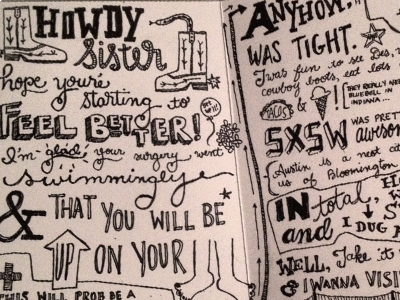 HOWDY
Sister
hope you're
starting to
FEEL BETTER!
I'm glad your surgery went
swimmingly
& THAT YOU WILL BE
UP ON YOUR
THIS WILL PROB BE A
ANYHOW,
WAS TIGHT.
I was fun to see Des,
cowboy boots, eat lots
TACOS &
THEY REALLY NEED
BLUEBELL IN
INDIANA...
SXSW WAS PRET
awesome
Austin is a neat cit
us of Bloomington
IN total,
and I DUG A
WELL, Take it
& I WANNA VISI